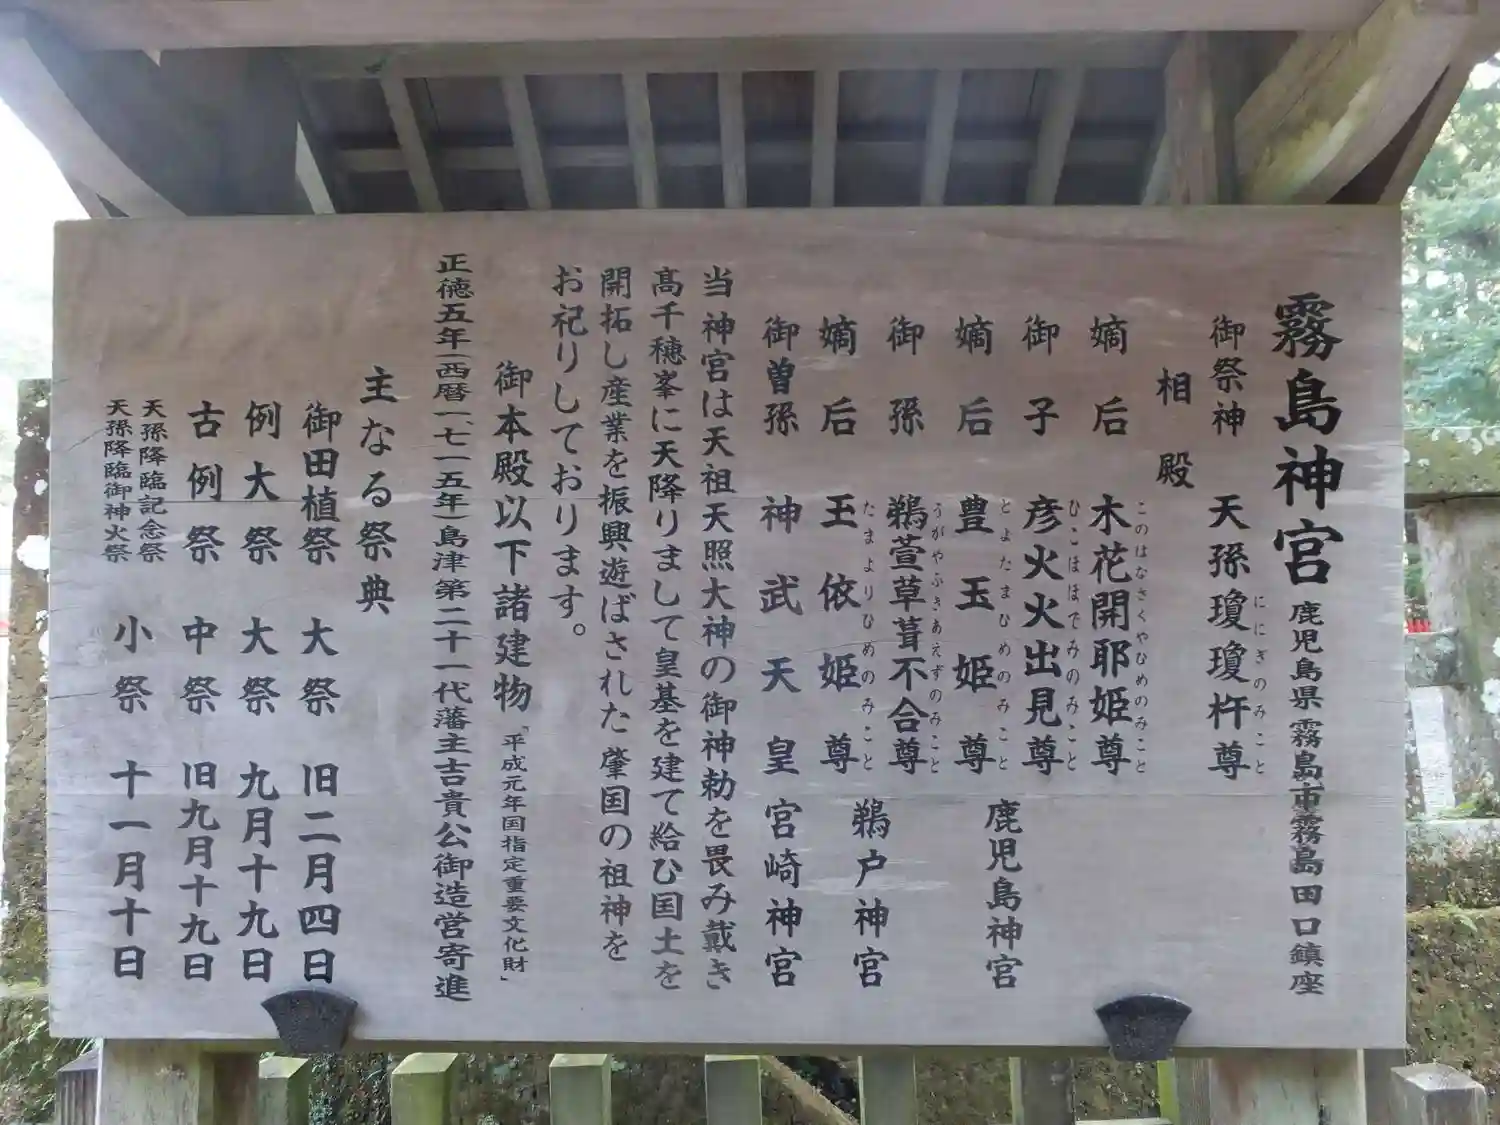 霧島神宮 鹿児島県霧島市霧島田口鎮座
御祭神 天孫瓊瓊杵尊
ににぎのみこと
相殿
嫡后 木花開耶姫尊
このはなさくやひめのみこと
御子 彦火火出見尊
ひこほほでみのみこと
嫡后 豊玉姫尊 鹿児島神宮
とよたまひめのみこと
御孫 鵜萱草葺不合尊
うがやふきあえずのみこと
嫡后 玉依姫尊 鵜戸神宮
たまよりひめのみこと
御曽孫 神武天皇 宮崎神宮
当神宮は天祖天照大神の御神勅を畏み戴き
高千穂峯に天降りまして皇基を建て給ひ国土を
開拓し産業を振興遊ばされた肇国の祖神を
お祀りしております。
御本殿以下諸建物「平成元年国指定重要文化財」
正徳五年(西暦一、七一五年)島津第二十一代藩主吉貴公御造営寄進
主なる祭典
御田植祭 大祭 旧二月四日
例大祭 大祭 九月十九日
古例祭 中祭 旧九月十九日
天孫降臨記念祭
天孫降臨御神火祭 小祭 十一月十日